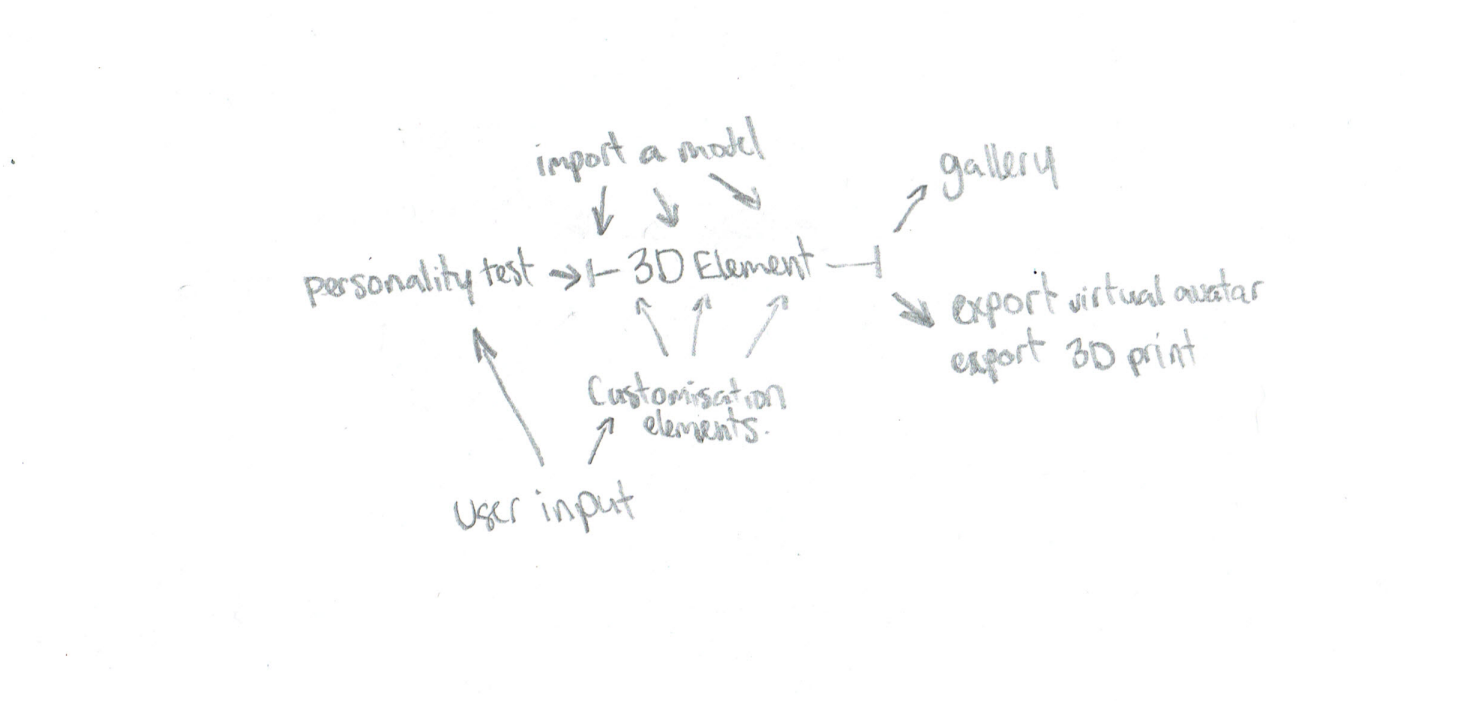 import a model
gallery
personality test
3D Element
export virtual avatar
export 3D print
Customisation
elements.
User input